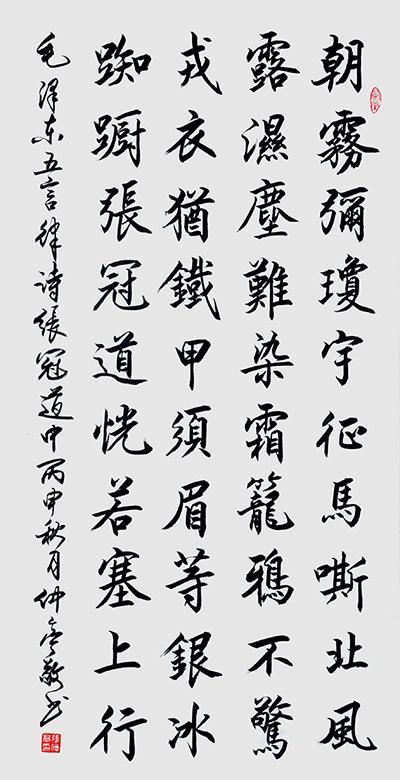 朝霧彌瓊宇征馬嘶北風
露濕塵難染霜籠鴉不驚
戎衣猶鐵甲須眉等銀冰
踟躕張冠道恍若塞上行
毛泽东五言律诗張冠道中丙申秋月仲亭敬书